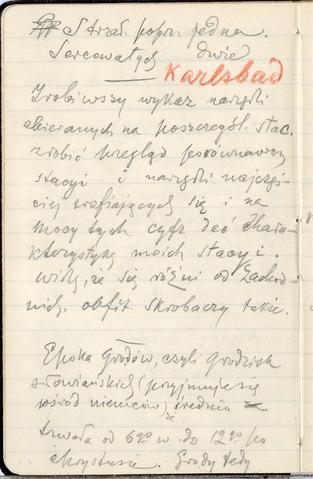 Strzał poprz. jedna.
Sercowatych dwie
Karlsbad
Zrobiwszy wykaz narzędzi
zbieranych na poszczegól. stac.
zrobić przegląd porównawczy
stacyi i narzędzi najczę-
ściej trafiających się i na
mocy tych cyfr dać chara-
kterystykę moich stacyi.
widzę, że się różni od zachod-
nich. obfit. skrobaczy także.
Epoka Grodów, czyli grodzisk
słowiańskich (przyjmuje się
pośród niemców) średnio
że
trwała od 6go w. do 12go po
Chrystusie. Grody tedy